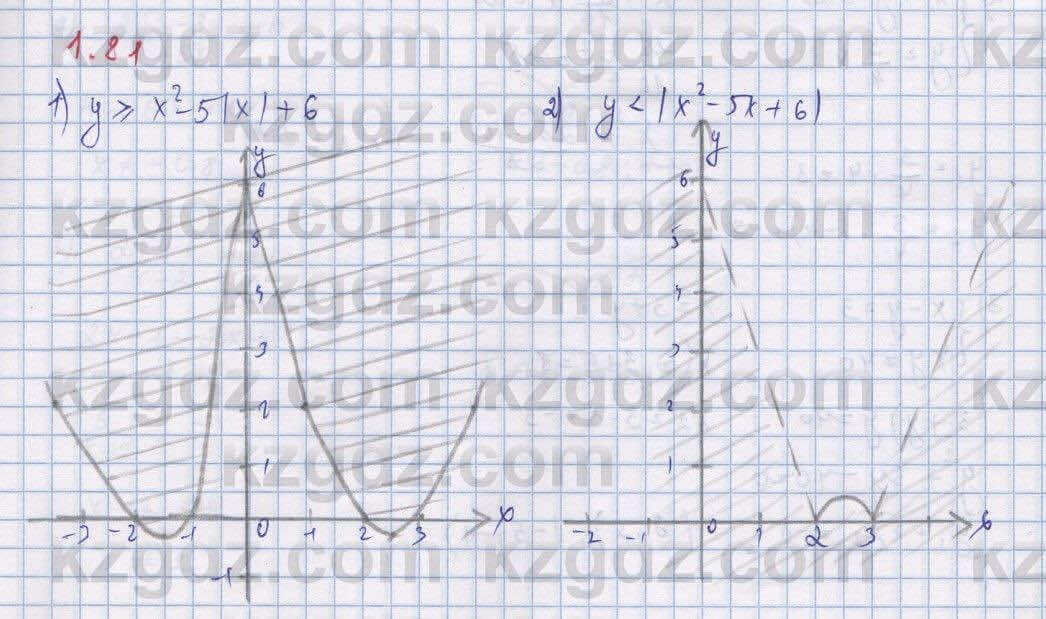 1.81
1) y ⩾ x²-5|x|+6
2) y < |x²-5x+6|
y
6
5
4
3
2
1
-3 -2 -1 0 1 2 3 x
-1
y
6
5
4
3
2
1
-2 -1 0 1 2 3 x
kzgdz.com kzgdz.com
kzgdz.com kzgdz.com
kzgdz.com kzgdz.com
kzgdz.com kzgdz.com
kzgdz.com kzgdz.com
kzgdz.com kzgdz.com
kzgdz.com kzgdz.com